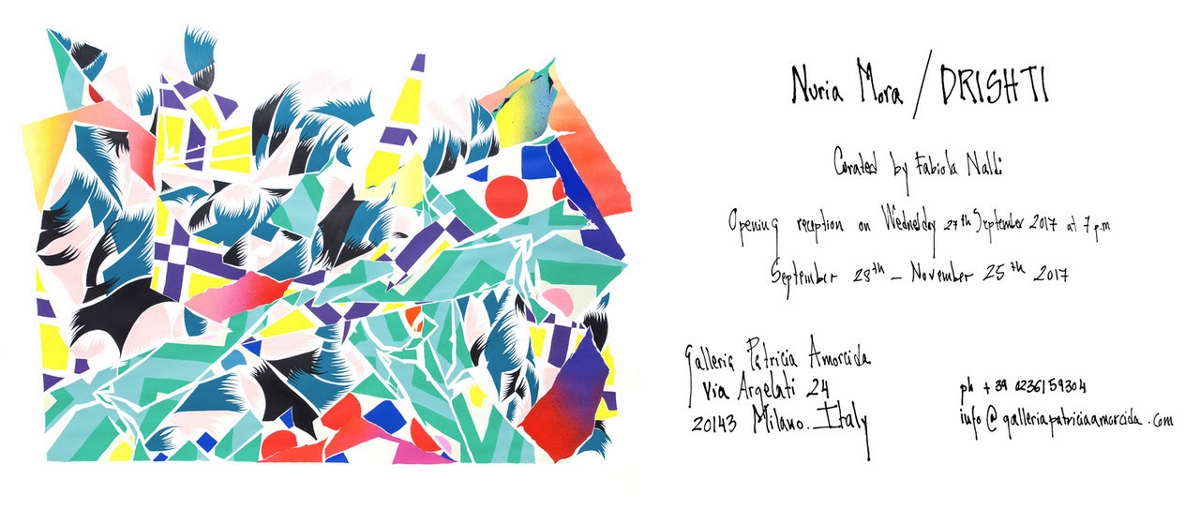 Nuria Mora / DRISHTI
Curated by Fabiola Naldi
Opening reception on Wednesday 27th September 2017 at 7 p.m
September 28th - November 25th 2017
Galleria Patricia Armocida
Via Argelati 24
20143 Milano. Italy
ph + 39 0236159304
info@galleriapatriciaarmocida.com